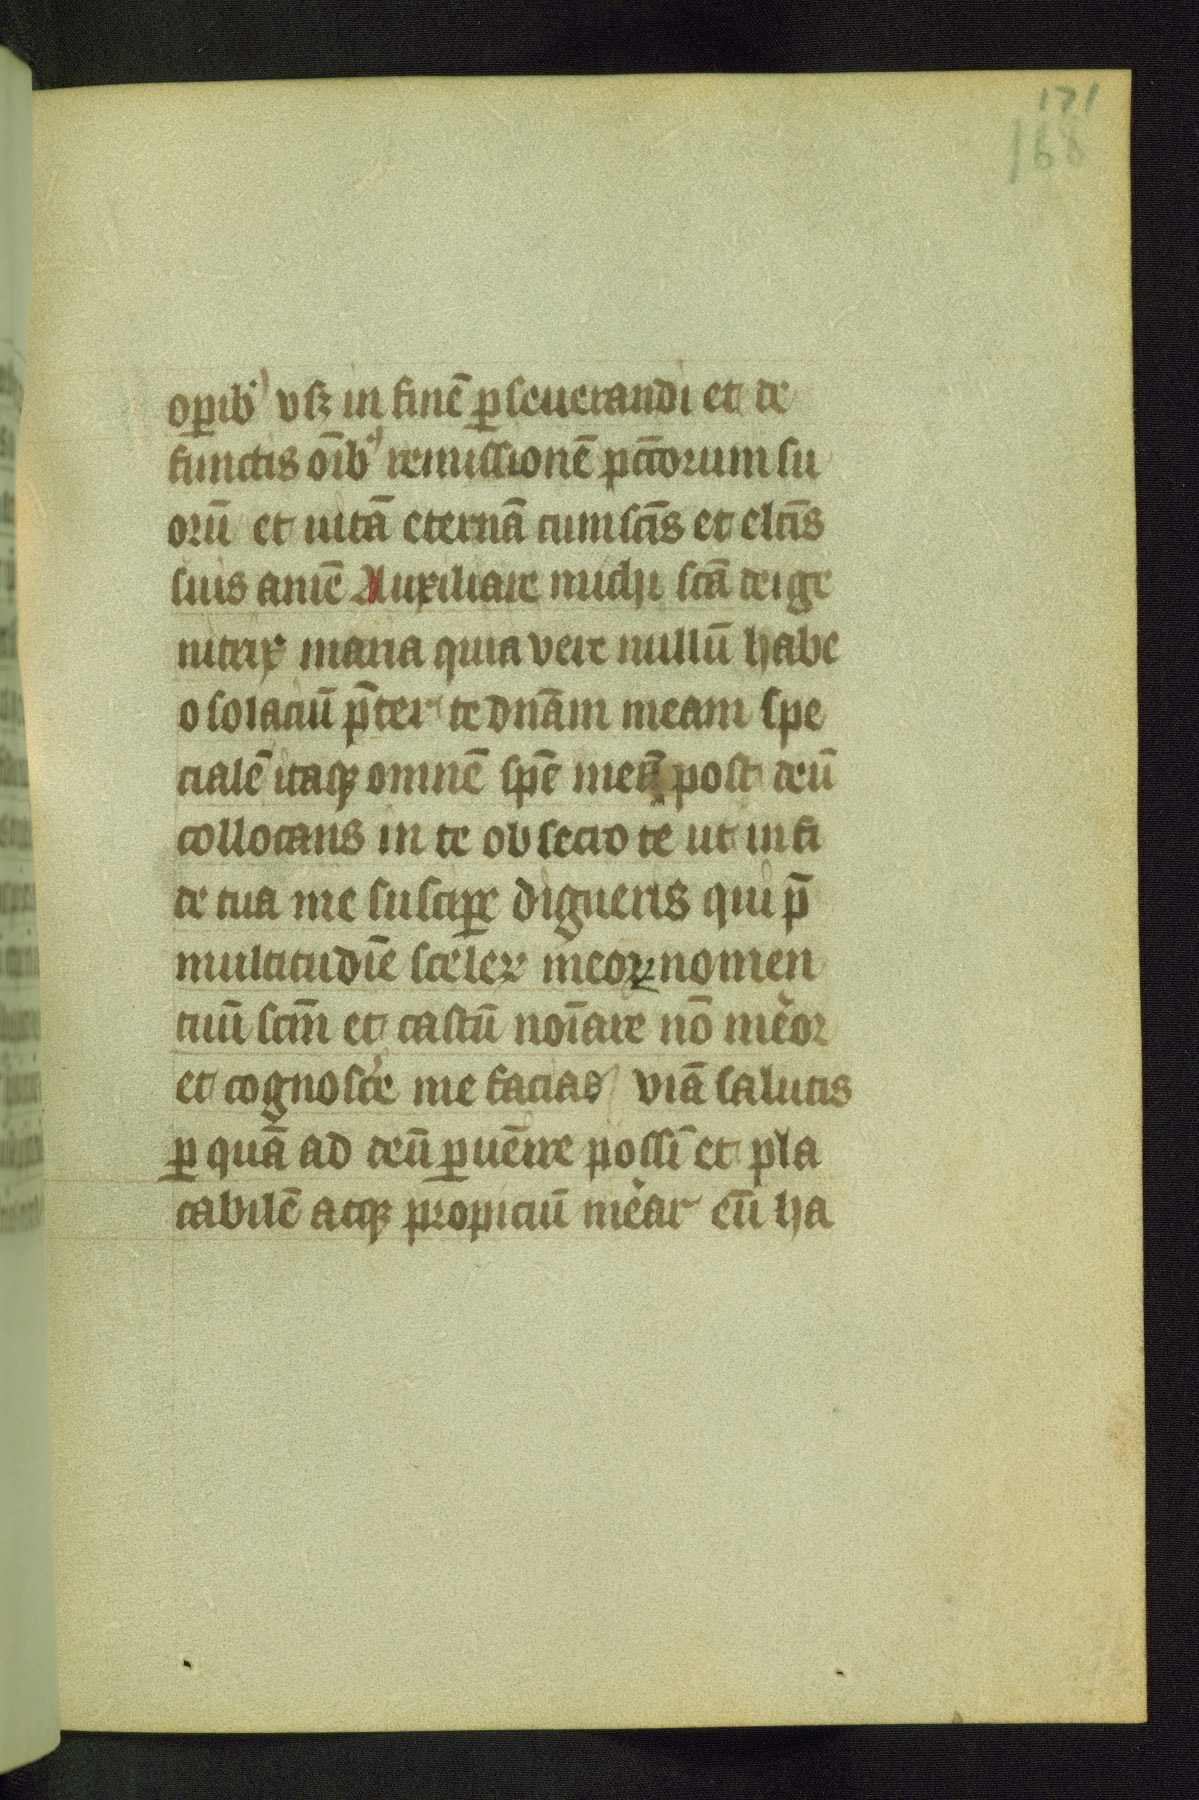 171
168
oꝑibꝰ vsꝫ in finē ꝑseuerandi et de
functis oībꝰ remissionē pcc̄orum su
orū et uitā eternā cum sc̄is et elc̄is
suis amē Auxiliare michi sc̄a dei ge
nitrix maria quia vere nullū habe
o solaciū p̄ter te dn̄am meam spe
cialē itaqꝫ omnē spē meā post deū
collocans in te obsecro te ut in fi
de tua me suscipe digneris qui p̄
multitudīe sceleꝝ meoꝝ nomen
tuū sc̄m et castū noīare nō meͥor
et cognoscͥe me facias viā salutis
ꝑ quā ad deū ꝑuēire possī et pla
cabilē atqꝫ propiciū meͥar eū ha